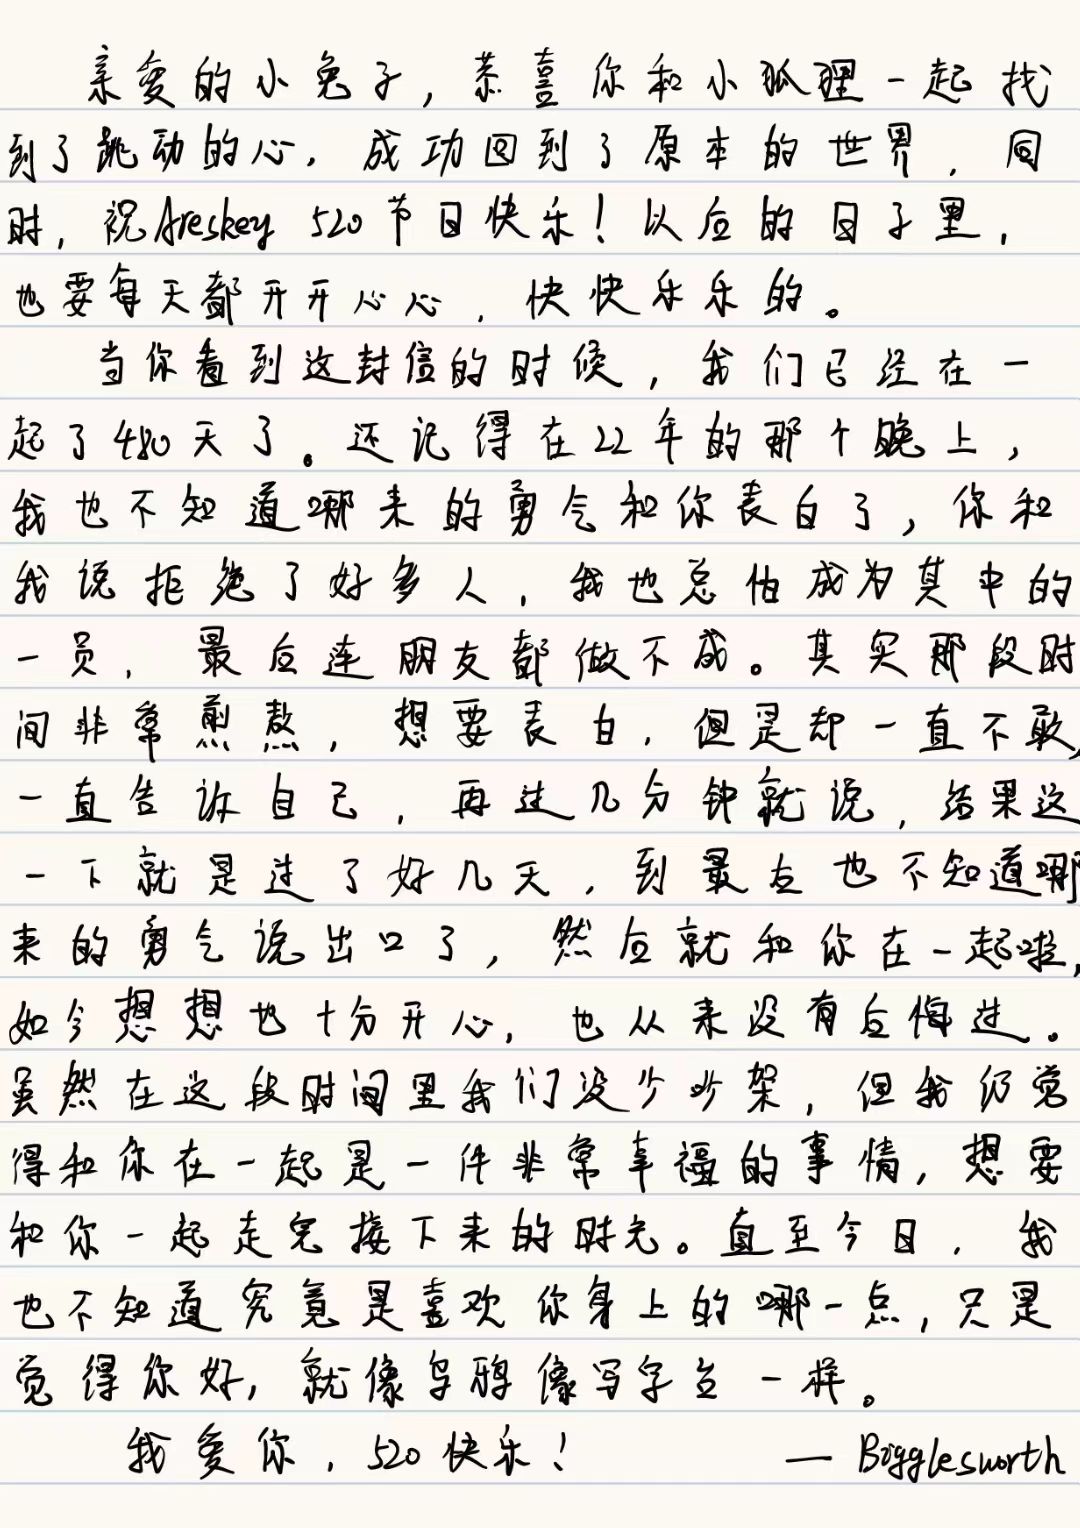 亲爱的小兔子，恭喜你和小狐狸一起找
到了跳动的心，成功回到了原本的世界，同
时，祝Areskey 520节日快乐！以后的日子里，
也要每天都开开心心，快快乐乐的。
当你看到这封信的时候，我们已经在一
起了480天了。还记得在22年的那个晚上，
我也不知道哪来的勇气和你表白了，你和
我说拒绝了好多人，我也总怕成为其中的
一员，最后连朋友都做不成。其实那段时
间非常煎熬，想要表白，但是却一直不敢，
一直告诉自己，再过几分钟就说，结果这
一下就是过了好几天，到最后也不知道哪
来的勇气说出口了，然后就和你在一起啦，
如今想想也十分开心，也从来没有后悔过。
虽然在这段时间里我们没少吵架，但我仍觉
得和你在一起是一件非常幸福的事情，想要
和你一起走完接下来的时光。直至今日，我
也不知道究竟是喜欢你身上的哪一点，只是
觉得你好，就像乌鸦像写字台一样。
我爱你，520快乐！ — Bigglesworth